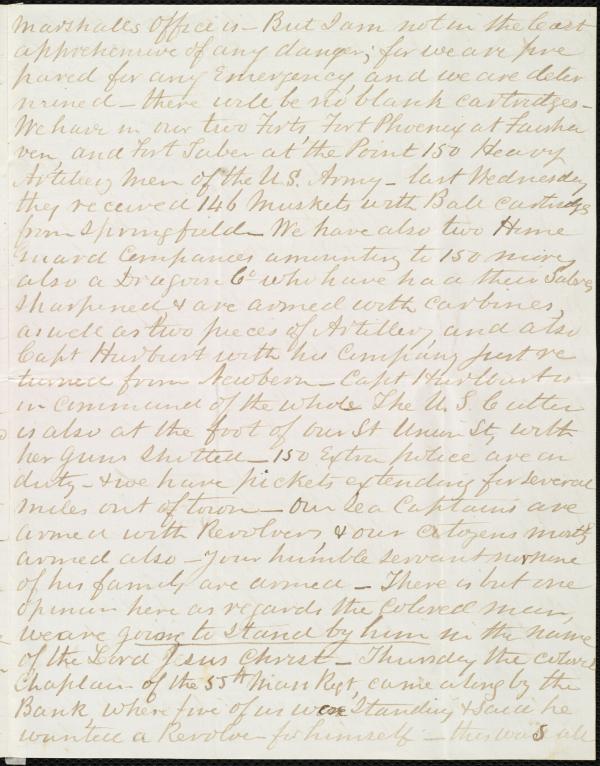 Marshalls Office is — But I am not in the least
apprehensive of any danger; for we are pre
pared for any Emergency, and we are deter
mined — there will be no blank cartridges —
We have in our two Forts, Fort Phoenix at Fairha
ven, and Fort Taber at the Point 150 Heavy
Artillery men of the U.S. Army — last Wednesday
they received 146 Muskets with Ball Cartridges
from Springfield — We have also two Home
Guard Companies amounting to 150 more,
also a Dragoon Co who have had their Sabres
sharpened, & are armed with carbines,
as well as two pieces of Artillery, and also
Capt Hurlburt with his Company just re
turned from Newbern — Capt Hurlburt is
in command of the whole The U.S. Cutter
is also at the foot of our St Union St, with
her guns shotted — 150 Extra police are on
duty — & we have pickets extending for several
miles out of town — Our Sea Captains are
armed with Revolvers, & our citizens mostly
armed also — Your humble servant nor none
of his family are armed — There is but one
opinion here as regards the colored man,
we are going to stand by him in the name
of the Lord Jesus Christ — Thursday the colored
Chaplain of the 55th Mass Regt, came along by the
Bank where five of us were Standing & Said he
wanted a Revolver for himself — this was all